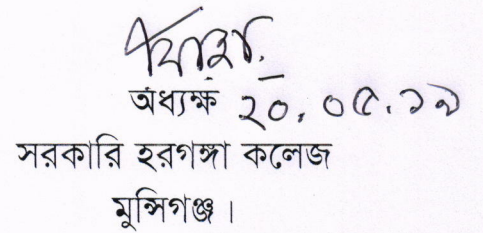 অধ্যক্ষ ২০.০৫.১৯
সরকারি হরগঙ্গা কলেজ
মুন্সিগঞ্জ।